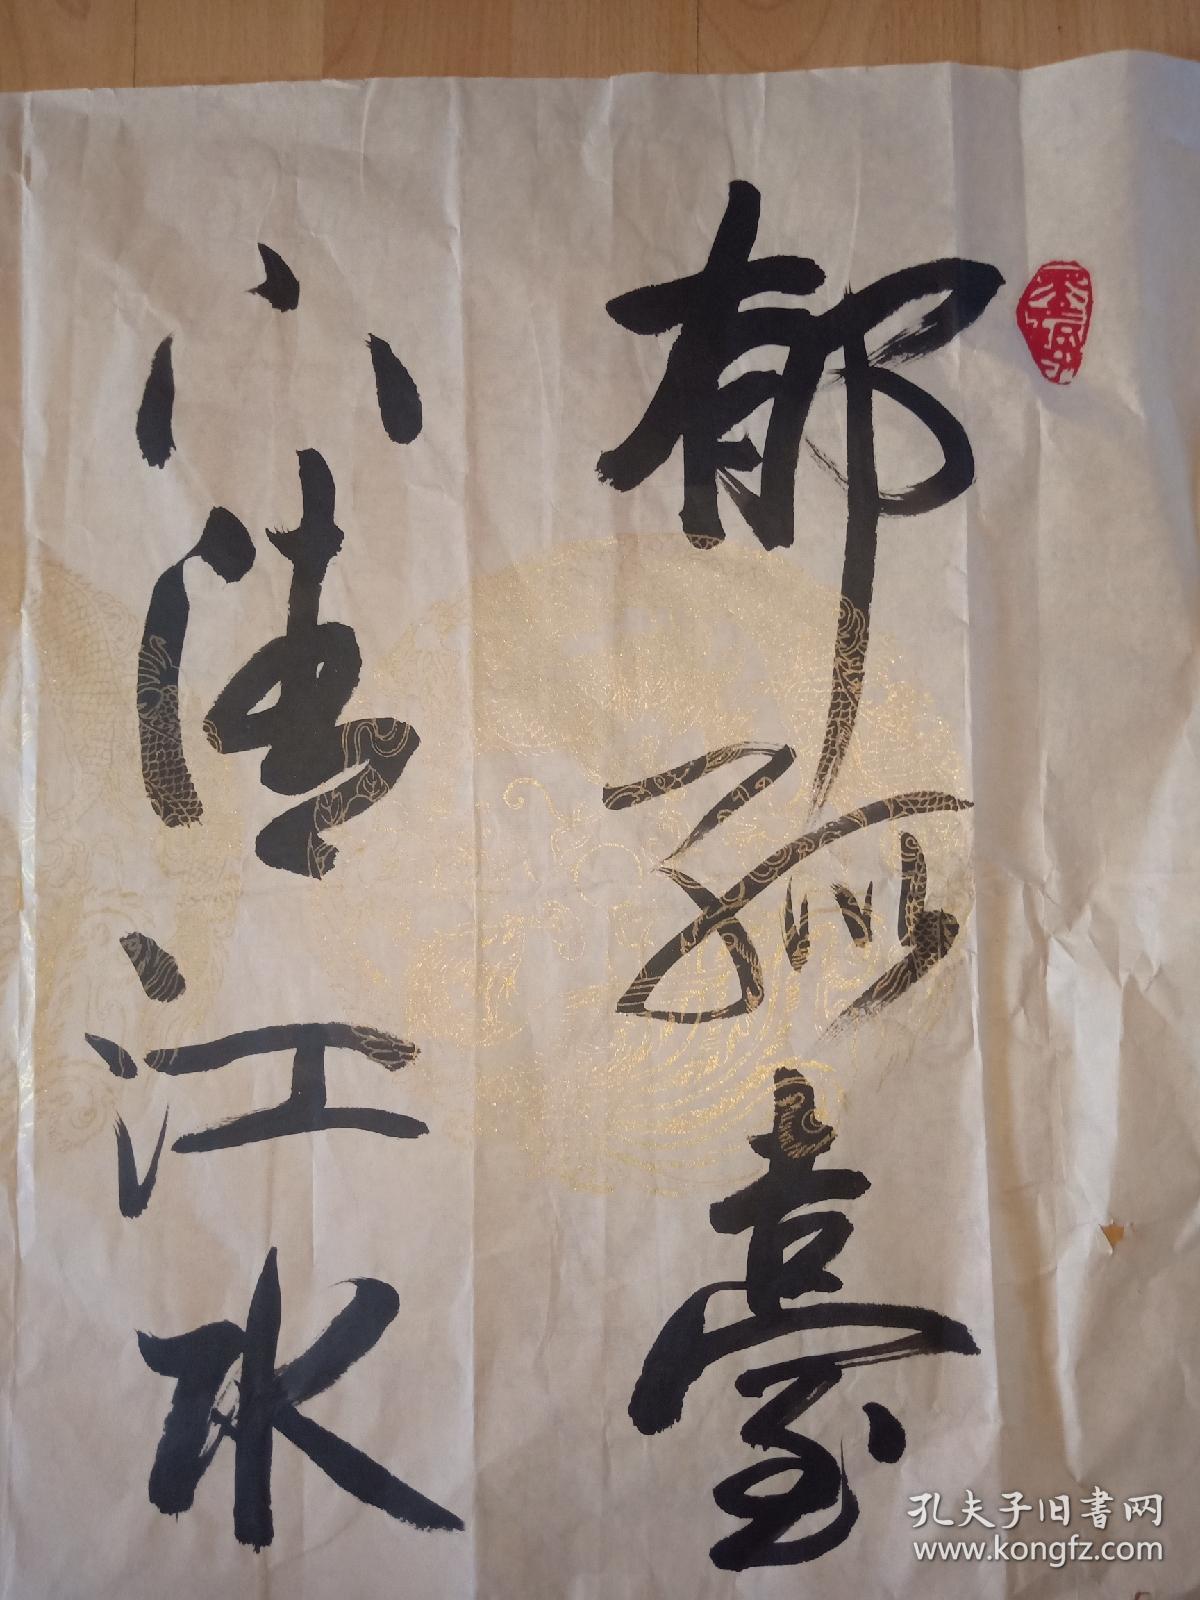 郁孤臺
下清江水
孔夫子旧書网
www.kongfz.com